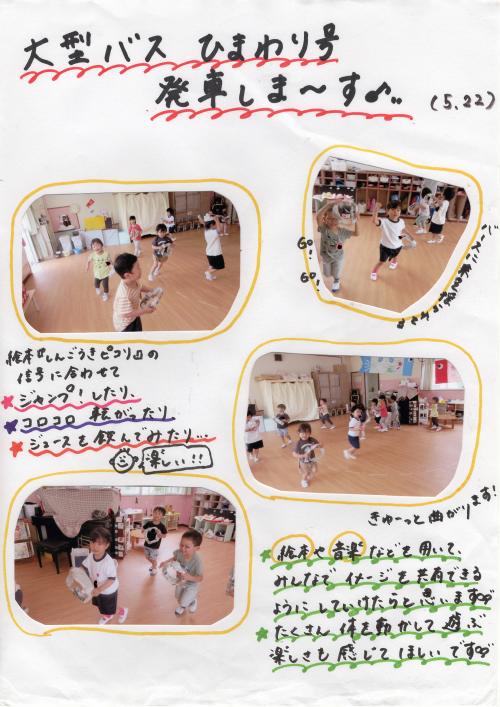 大型バス ひまわり号
発車しま～す♪
(5.22)
GO!
GO!
絵本『しんごうきピコリ』の
信号に合わせて
★ジャンプ!したり、
★コロコロ 転がったり
★ジュースを飲んでみたり…
楽しい!!
きゅーっと曲がります!
★絵本や音楽などを用いて、
みんなで イメージを共有できる
ようにしていけたらと思います♡
★たくさん 体を動かして 遊ぶ
楽しさも 感じてほしいです♡